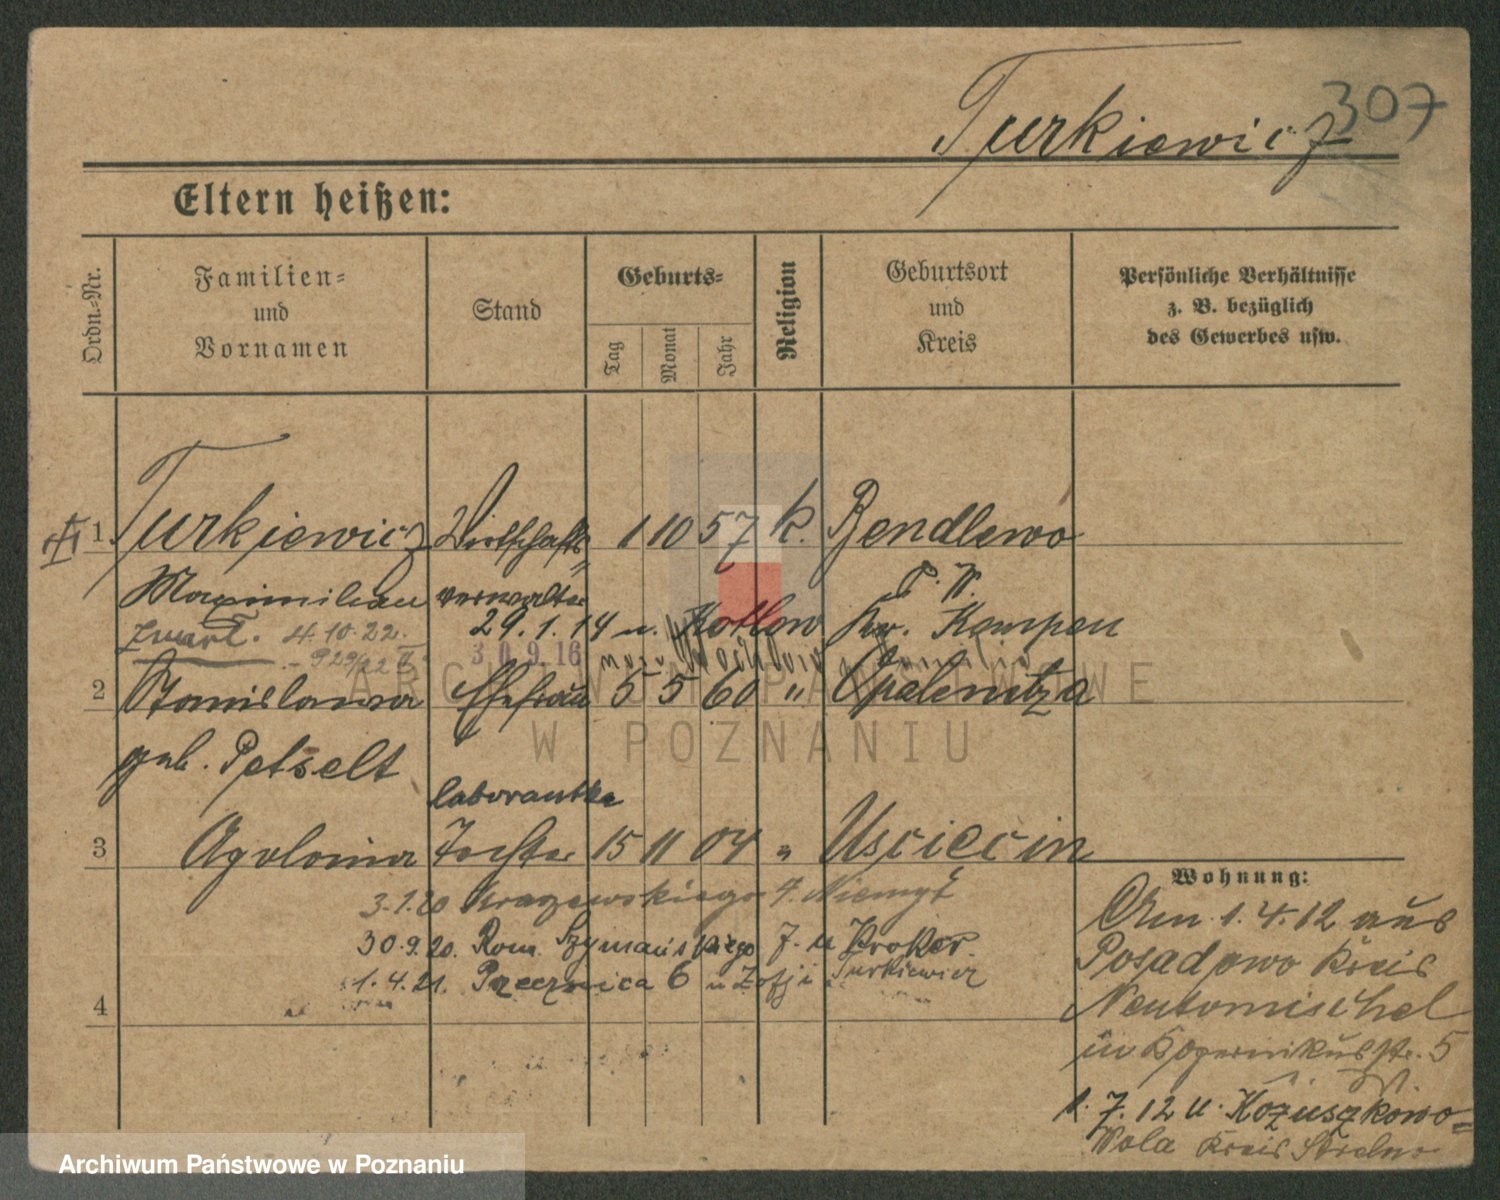 307
Turkiewicz
Eltern heißen:
Ordn.-Nr.
Familien-
und
Vornamen
Stand
Geburts-
Tag
Monat
Jahr
Religion
Geburtsort
und
Kreis
Persönliche Verhältnisse
z. B. bezüglich
des Gewerbes usw.
1 Turkiewicz Wirtschafts- 1 10 57 k. Bendlewo
Maximilian verwalter P. W.
zmarł. 4.10.22. 29.1.14 n. Kotlow Kr. Kempen
929/22 II 30.9.16
2 Stanislawa Ehefrau 5 5 60 " Opalenitza
geb. Petzelt
laborantka
3 Apolonia Tochter 15 11 04 " Usciecin
3.1.20 Kraszewskiego 7.
30.9.20. Rom. Szymańskiego 7. u Kroker.
1.4.21. Przecznica 6 u Zofji Turkiewicz
4
Wohnung:
Am 1.4.12 aus
Posadowo Kreis
Neutomischel
in Kopernikusstr. 5
1.7.12 n. Kożuszkowo-
Wola Kreis Strelno
ARCHIWUM PAŃSTWOWE
W POZNANIU
Archiwum Państwowe w Poznaniu